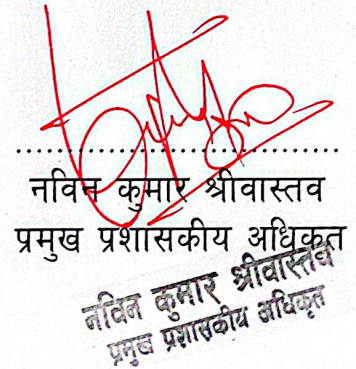 ........................................
नविन कुमार श्रीवास्तव
प्रमुख प्रशासकीय अधिकृत
नविन कुमार श्रीवास्तव
प्रमुख प्रशासकीय अधिकृत